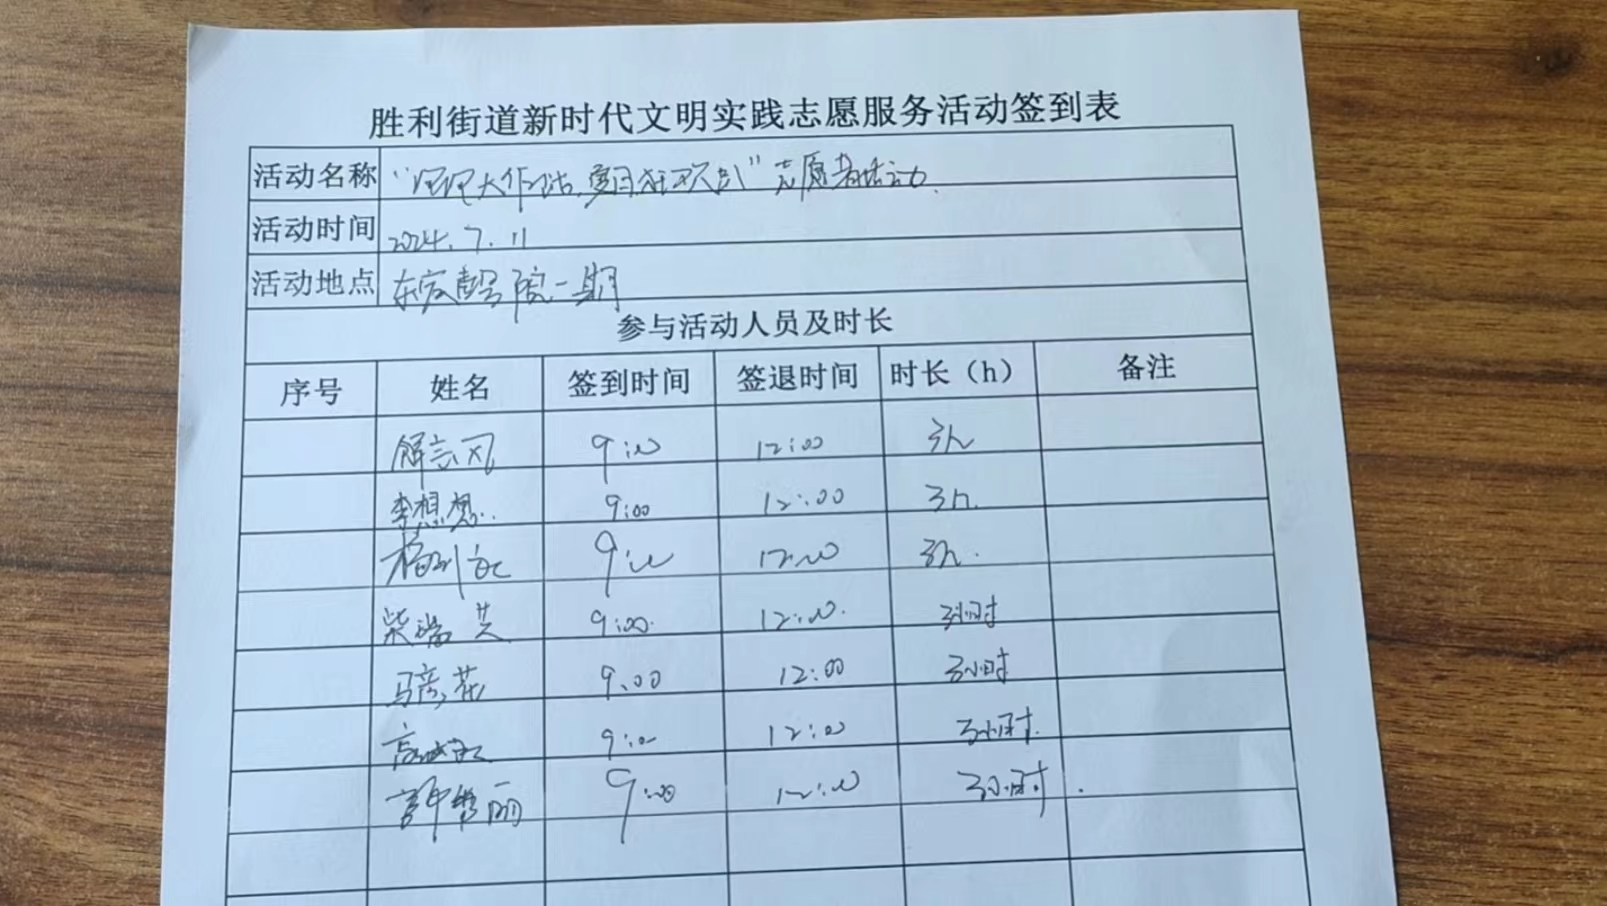 胜利街道新时代文明实践志愿服务活动签到表
活动名称 “泥泥大作战,夏日狂欢趴”志愿者活动.
活动时间 2024.7.11
活动地点 东宸馨院一期
参与活动人员及时长
序号 姓名 签到时间 签退时间 时长（h） 备注
解云风 9:00 12:00 3h
李想想 9:00 12:00 3h.
9:00 12:00 3h.
柴瑞芝 9:00. 12:00. 3小时
马彦花 9:00 12:00 3小时
9:00 12:00 3小时.
许紫丽 9:00 12:00 3小时.